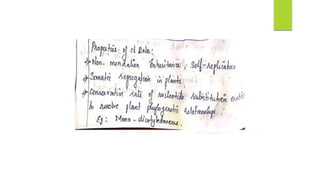 Properties of cl DNA:
→ Non-mendalian Inheritance, Self-replication
→ Somatic segregation in plants
→ Conservative rate of nucleotide substitution enable
to resolve plant phylogenetic relationships.
Eg: Mono-dicotyledonous.